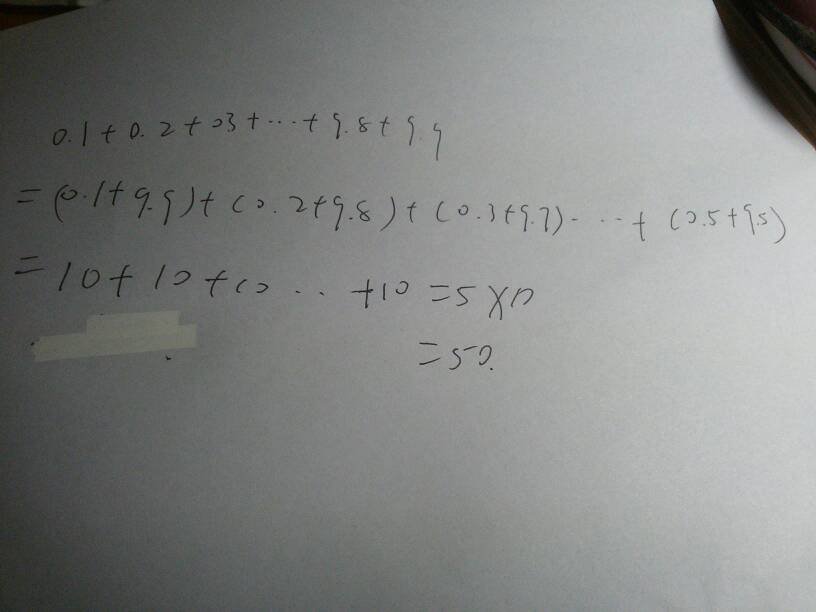 0.1+0.2+03+…+9.8+9.9
=(0.1+9.9)+(0.2+9.8)+(0.3+9.7)-…+(0.5+9.5)
=10+10+10…+10=5×10
=50.